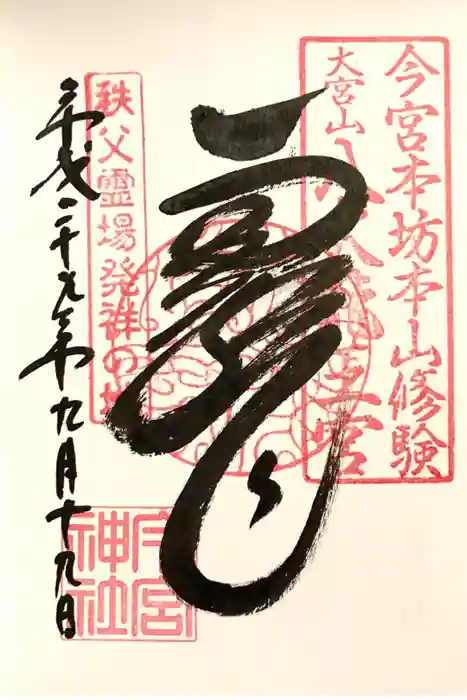 今宮本坊本山修験
大宮山八大龍王宮
龍
秩父霊場発祥の地
平成二十九年九月十九日
今宮神社